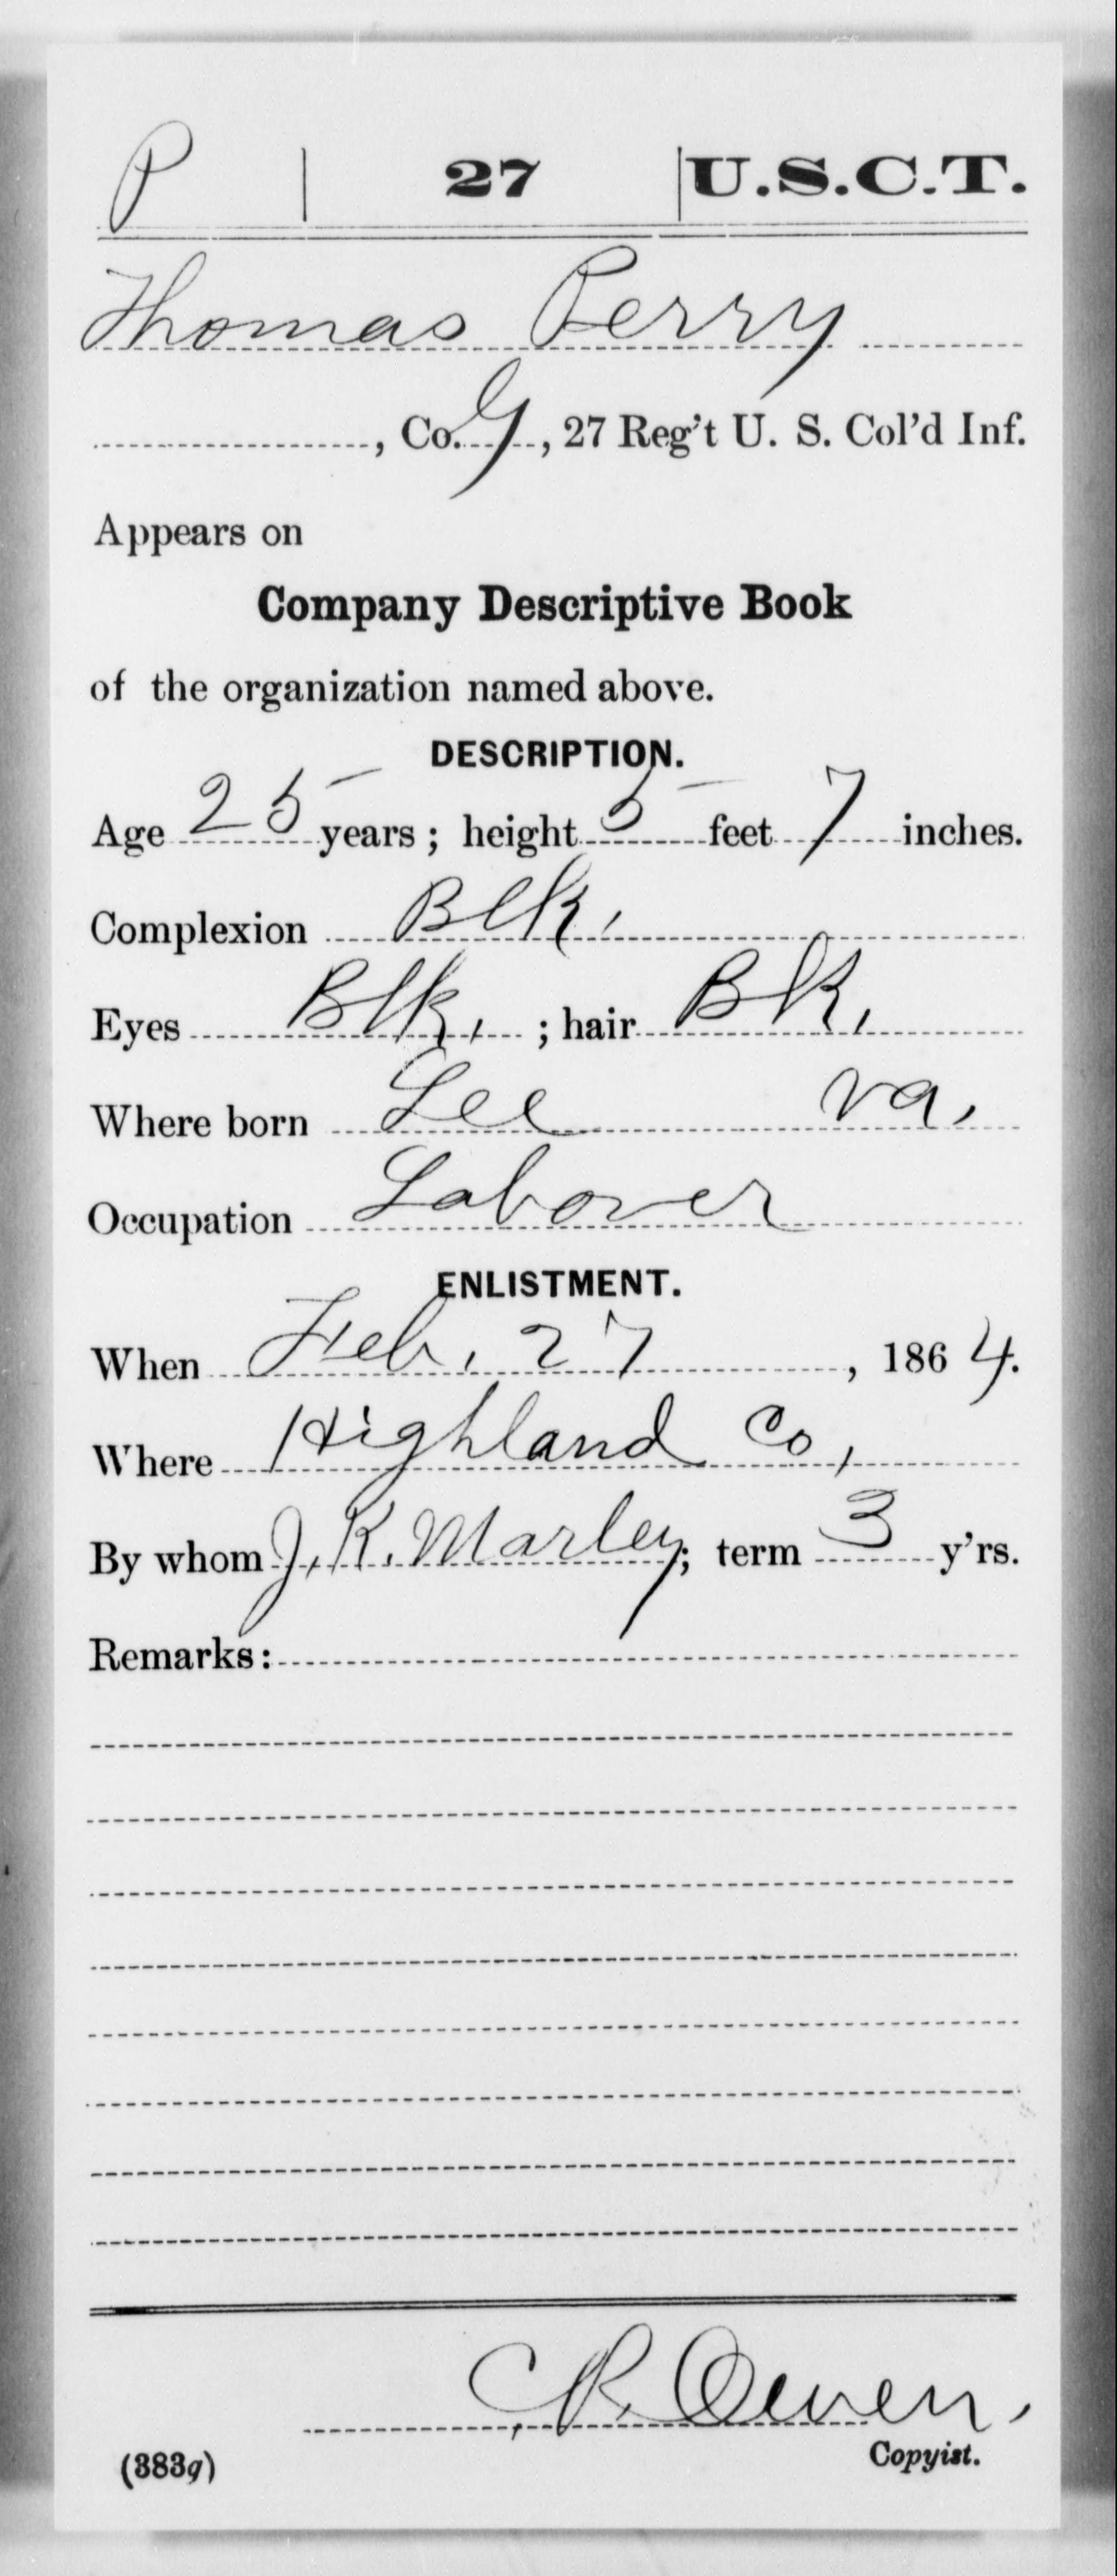 P | 27 | U.S.C.T.
Thomas Perry
, Co. G, 27 Reg't U. S. Col'd Inf.
Appears on
Company Descriptive Book
of the organization named above.
DESCRIPTION.
Age 25 years; height 5 feet 7 inches.
Complexion Blk.
Eyes Blk. ; hair Blk.
Where born Lee Va.
Occupation Laborer
ENLISTMENT.
When Feb. 27, 1864.
Where Highland Co.
By whom J. K. Marley; term 3 y'rs.
Remarks:
C R. Owen,
Copyist.
(383g)